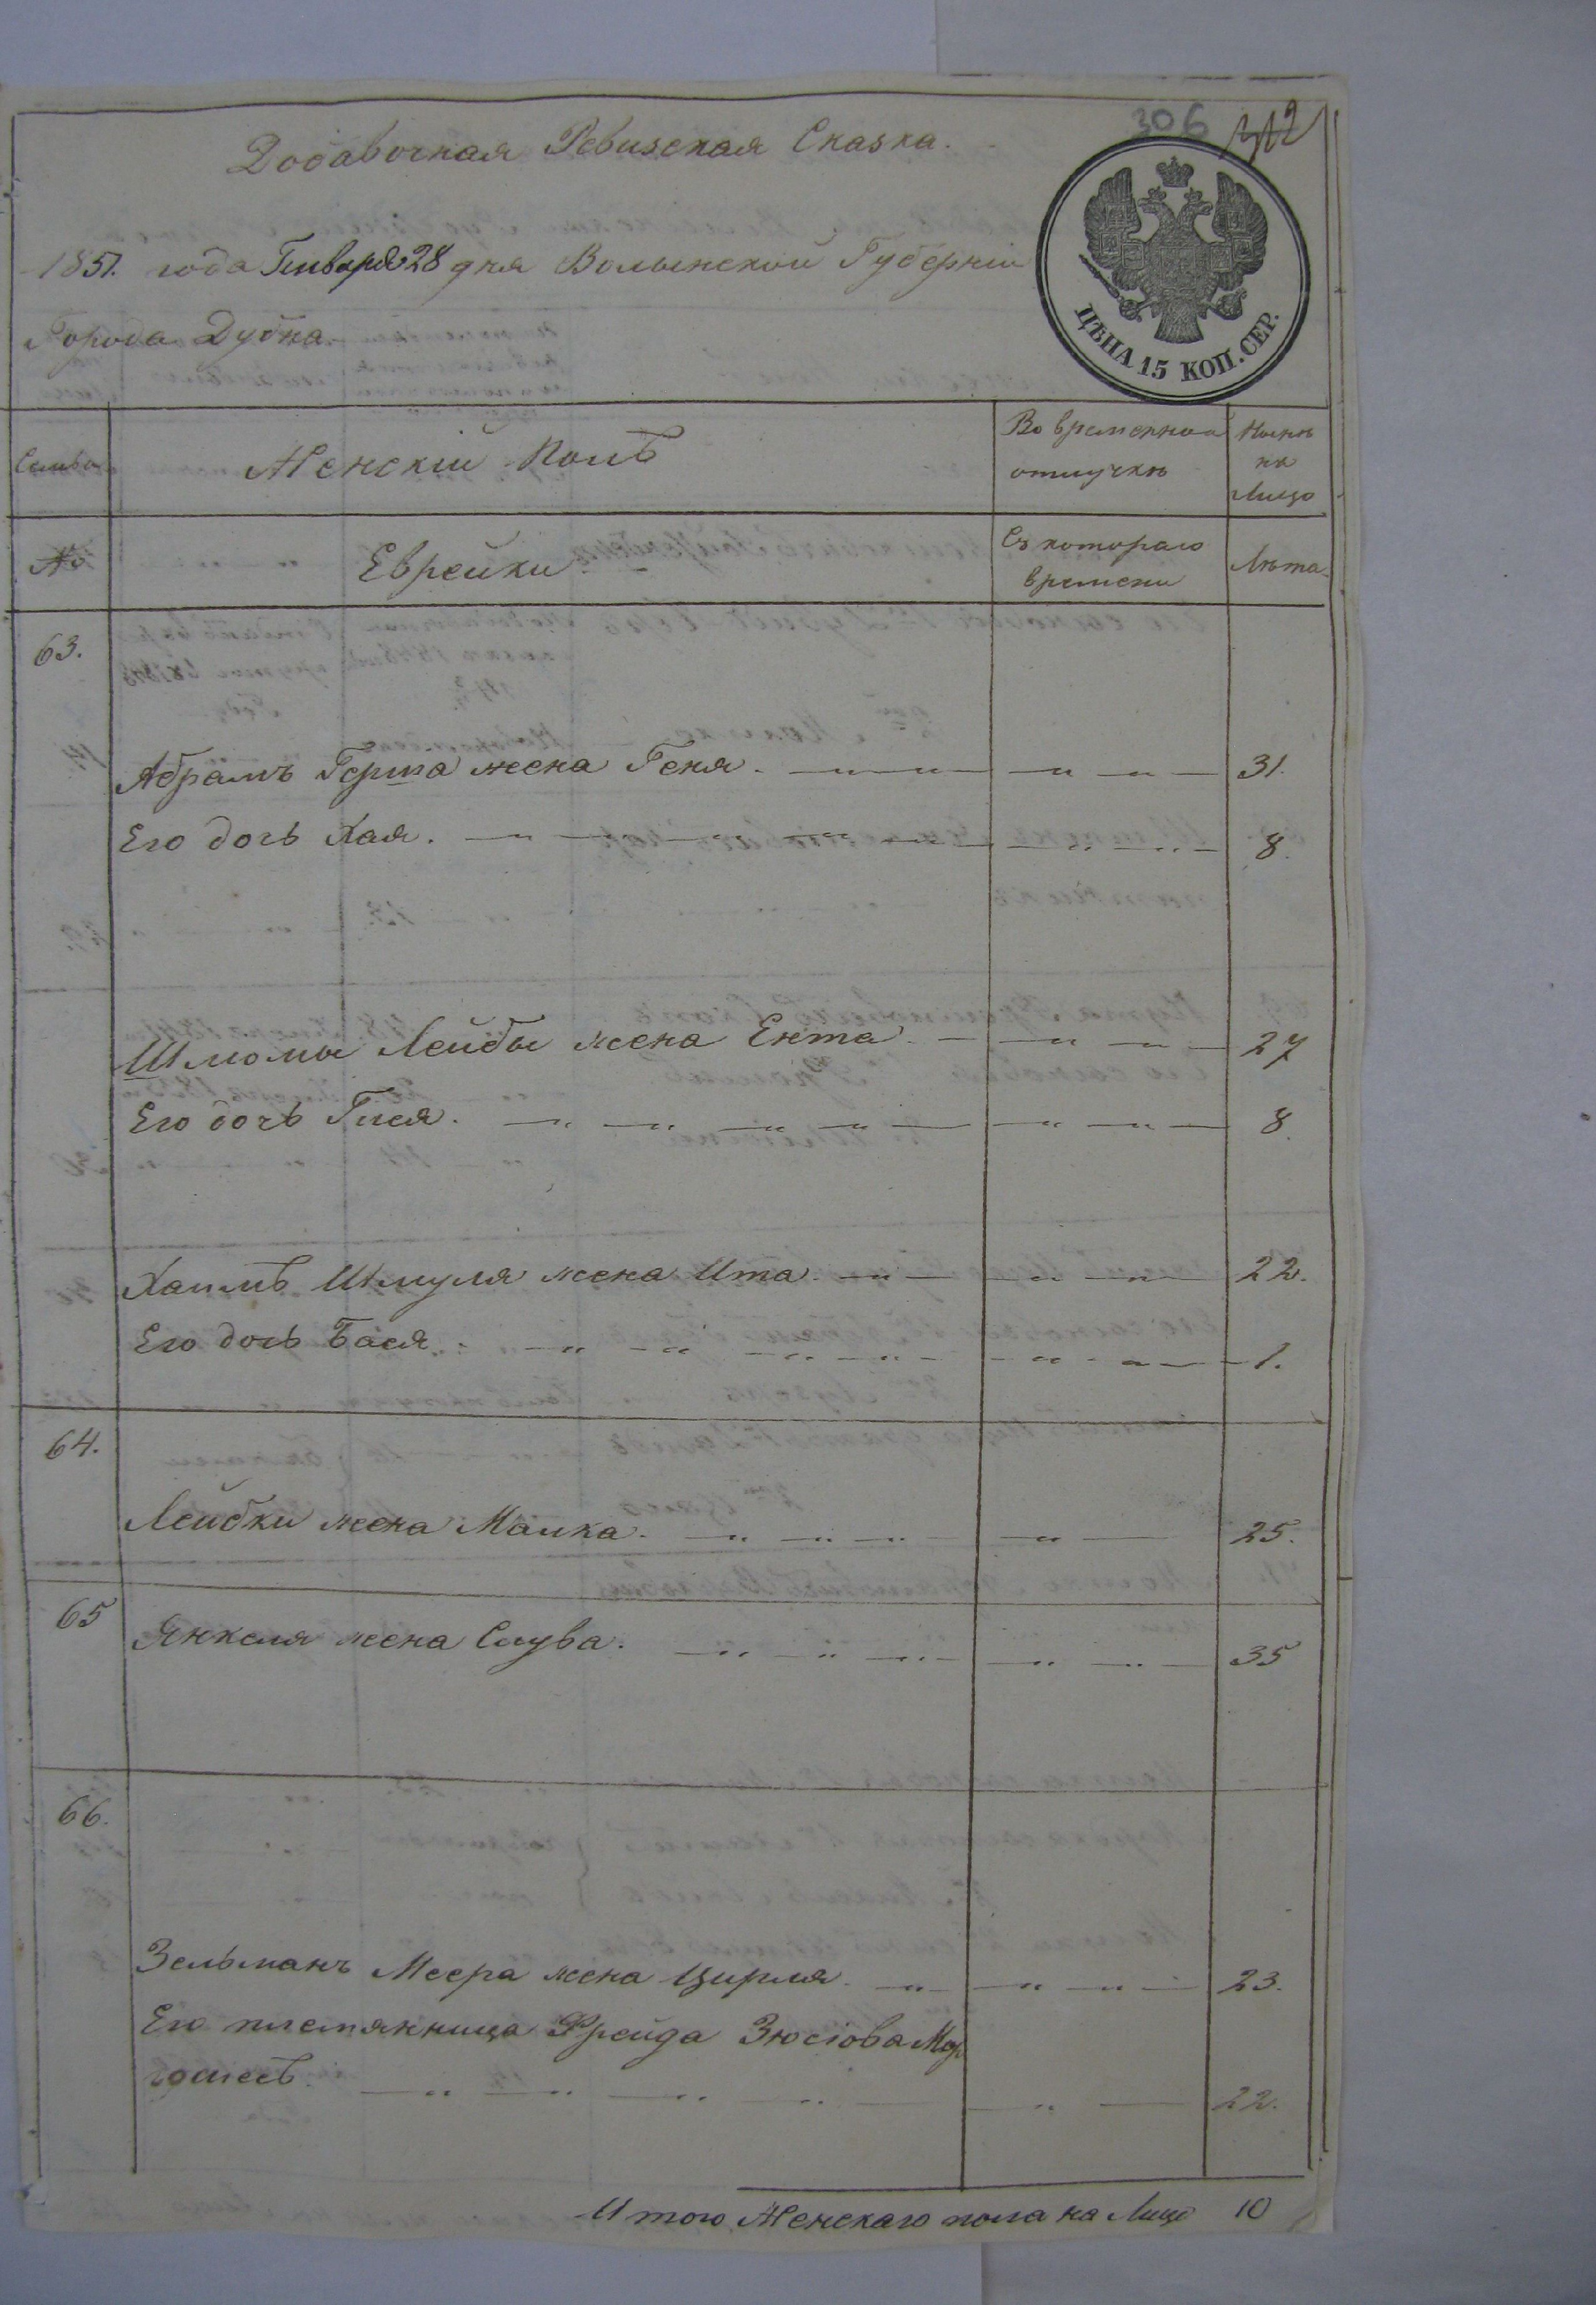 306
312
Добавочная Ревизская Сказка.
1851. года Генваря 28 дня Волынской Губерніи
Города Дубна.
ЦѢНА 15 КОП. СЕР.
Семьи Женскій Полъ Во временной отлучкѣ Нынѣ на Лицо
№ Еврейки Съ котораго времени Лѣта.
63.
Абрамъ Герша жена Геня. 31.
Его дочь Хая. 8.
Шломы Лейбы жена Ента. 27
Его дочь Гися. 8.
Хаимъ Шмуля жена Ита. 22.
Его дочь Бася. 1.
64.
Лейбки жена Малка. 25.
65 Янкеля жена Слува. 35
66.
Зельманъ Меера жена Цирля. 23.
Его племянница Фрейда Зюсіова Мор
гошесъ. 22.
Итого Женскаго пола на Лицо 10